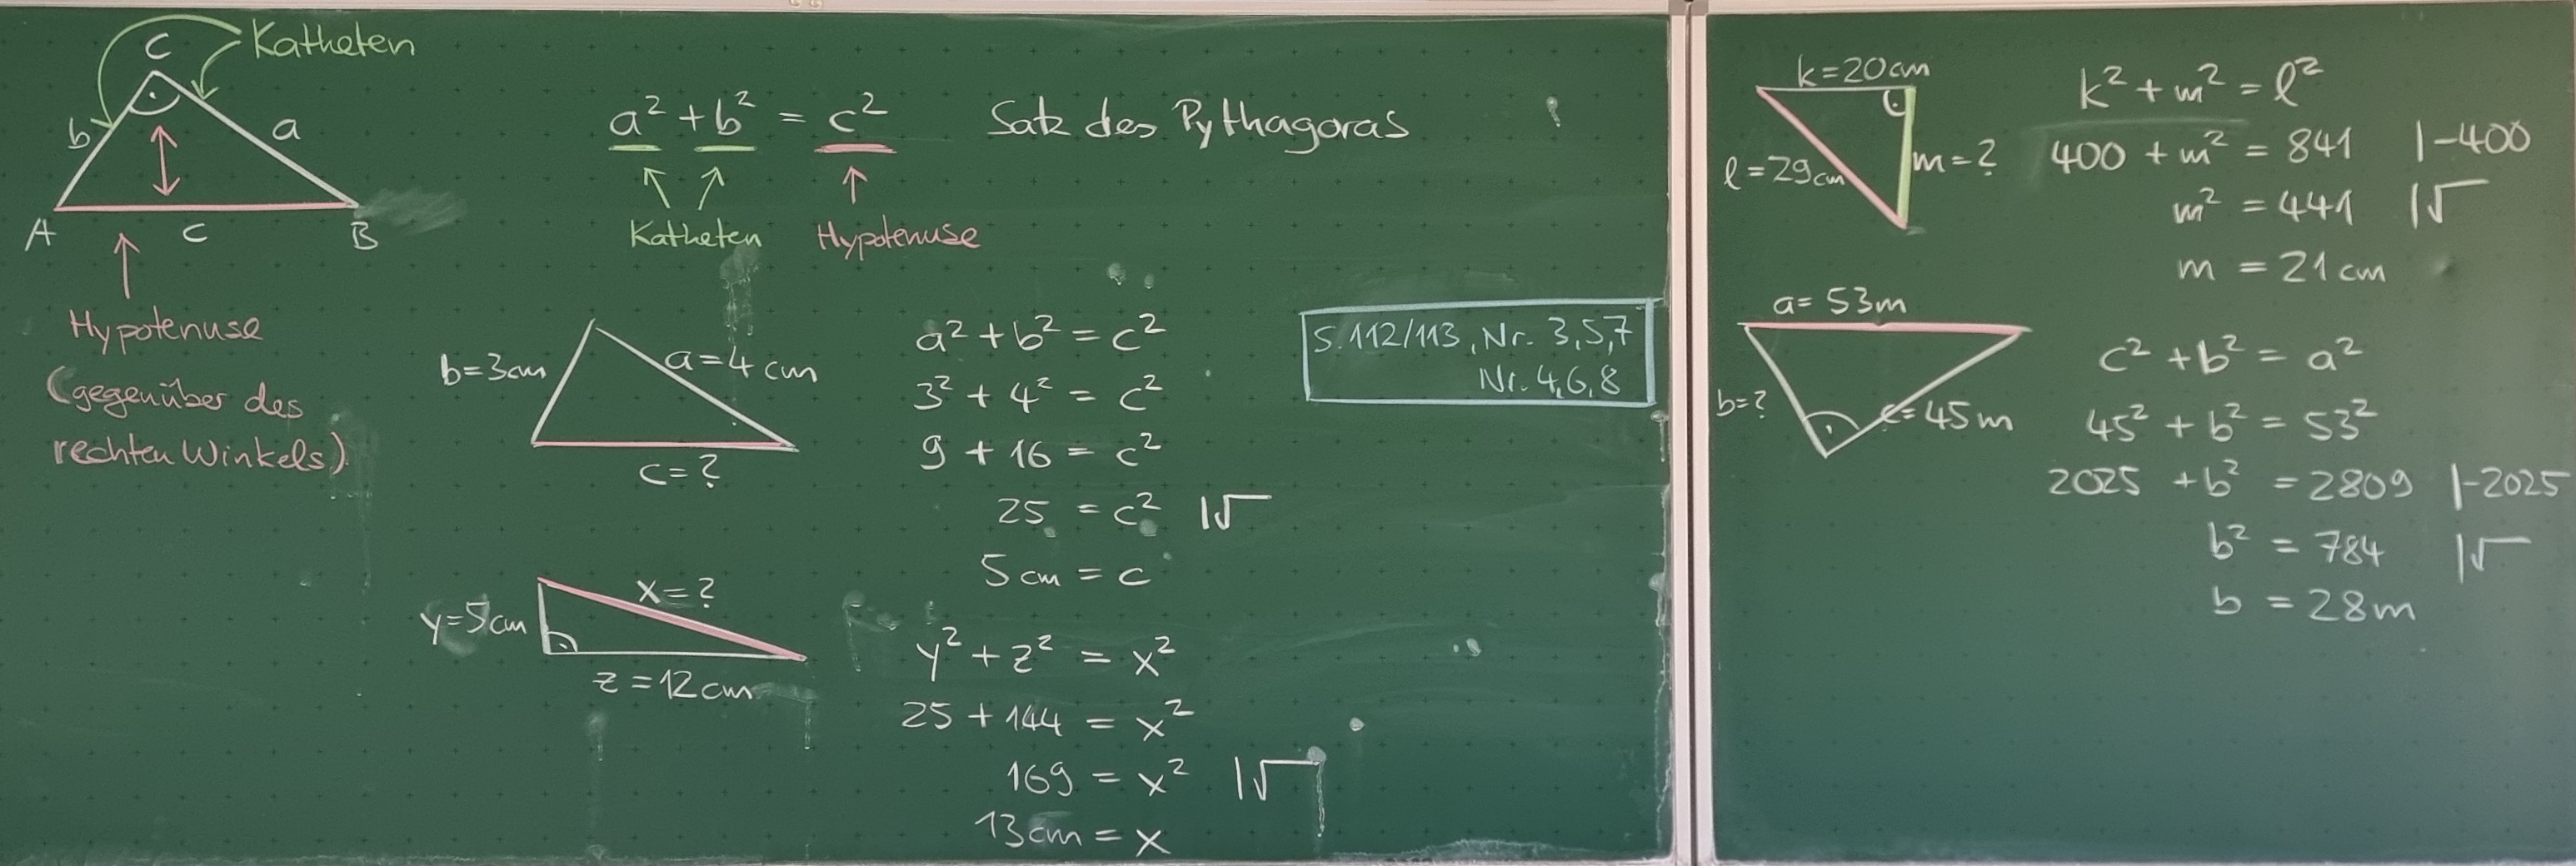 C
Katheten
b
a
A
c
B
Hypotenuse
(gegenüber des
rechten Winkels)
a² + b² = c²
Satz des Pythagoras
Katheten
Hypotenuse
b=3cm
a=4 cm
c=?
a² + b² = c²
3² + 4² = c²
9 + 16 = c²
25 = c² |√
5cm = c
S. 112/113, Nr. 3,5,7
Nr. 4,6,8
y=5cm
x=?
z=12cm
y² + z² = x²
25 + 144 = x²
169 = x² |√
13cm = x
k=20cm
l=29cm
m=?
k² + m² = l²
400 + m² = 841 |-400
m² = 441 |√
m = 21cm
a=53m
b=?
c=45m
c² + b² = a²
45² + b² = 53²
2025 + b² = 2809 |-2025
b² = 784 |√
b = 28m